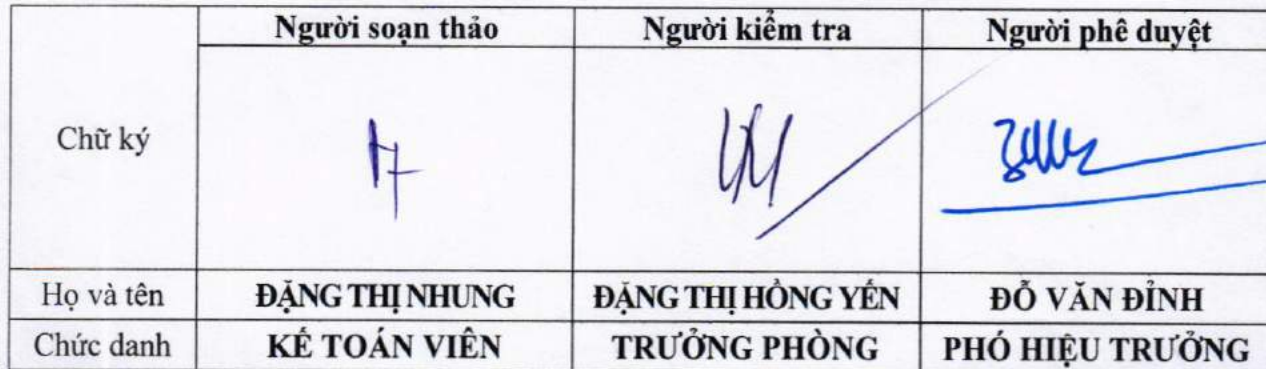 Người soạn thảo Người kiểm tra Người phê duyệt
Chữ ký
Họ và tên ĐẶNG THỊ NHUNG ĐẶNG THỊ HỒNG YẾN ĐỖ VĂN ĐỈNH
Chức danh KẾ TOÁN VIÊN TRƯỞNG PHÒNG PHÓ HIỆU TRƯỞNG